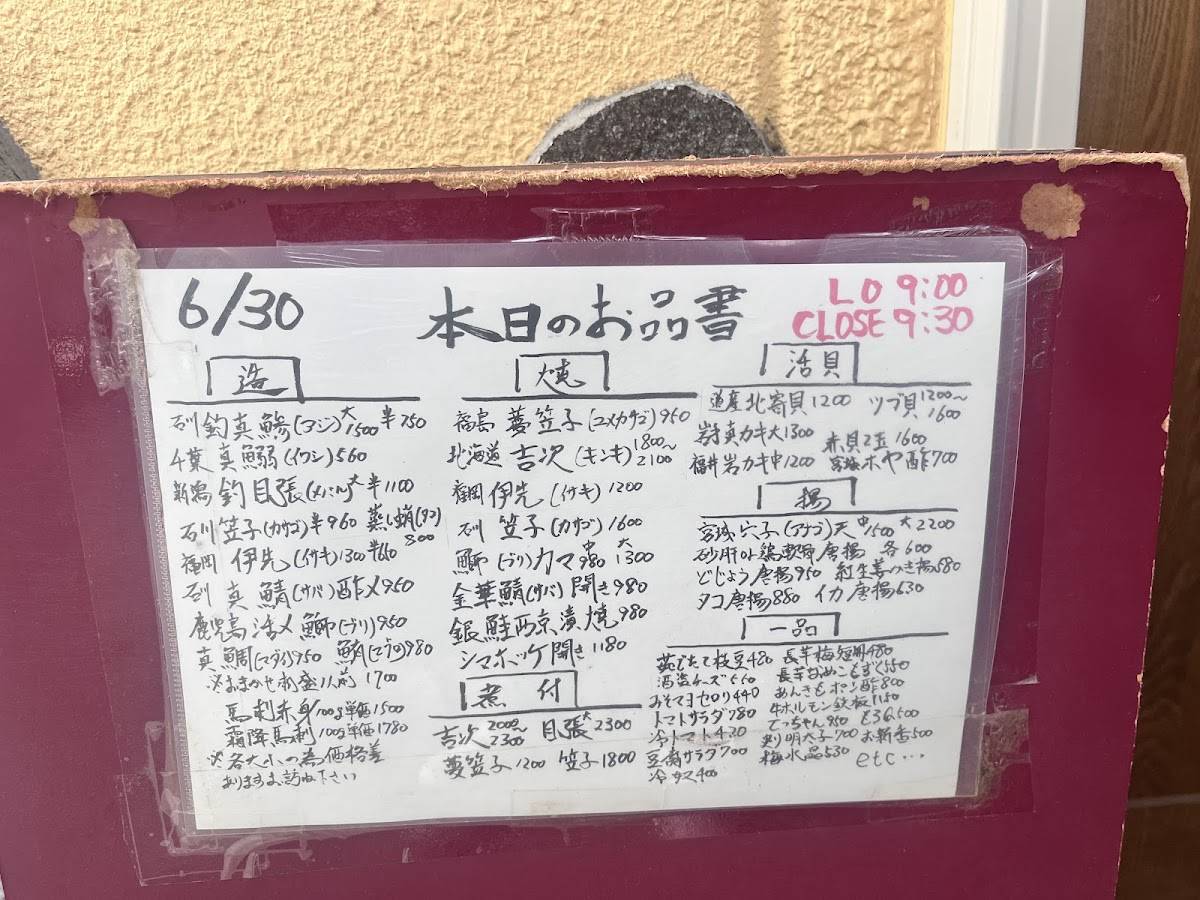 6/30
本日のお品書
LO 9:00
CLOSE 9:30
造
石川 釣真鯵(アジ)大1500 半750
千葉 真鰯(イワシ)560
新潟 釣目張(メバル)大半1100
石川 笠子(カサゴ)半960 蒸し蛸(タコ)800
福岡 伊先(イサキ)1300 半650
石川 真鯖(サバ)酢〆950
鹿児島 活〆鰤(ブリ)950
真鯛(マダイ)950 鮪(マグロ)980
※おまかせ刺盛1人前 1700
馬刺赤身/100g単価1500
霜降馬刺 100g単価1780
※各大小の為価格差
あります。お訪ね下さい
焼
福島 夢笠子(ユメカサゴ)950
北海道 吉次(キンキ)1800~2100
福岡 伊先(イサキ)1200
石川 笠子(カサゴ)1600
鰤(ブリ)カマ 中980 大1300
金華鯖(サバ)開き980
銀鮭西京漬焼980
シマホッケ開き1180
煮付
吉次2000~2300 目張大2300
夢笠子1200 笠子1800
活貝
道産北寄貝1200 ツブ貝1200~1600
岩手真カキ大1300 赤貝2玉1600
福井岩カキ中1200 宮城ホヤ酢700
揚
宮城穴子(アナゴ)天 中1500 大2200
砂肝or鶏軟骨唐揚 各600
どじょう唐揚950 紅生姜かき揚580
タコ唐揚880 イカ唐揚630
一品
茹でたて枝豆480
酒盗チーズ550
みそマヨセロリ440
トマトサラダ780
冷トマト430
豆腐サラダ700
冷ナス400
長芋梅短冊480
長芋なめこもずく550
あんきもポン酢800
牛ホルモン鉄板1150
てっちゃん950
炙り明太子700 お新香500
梅水晶530 etc…